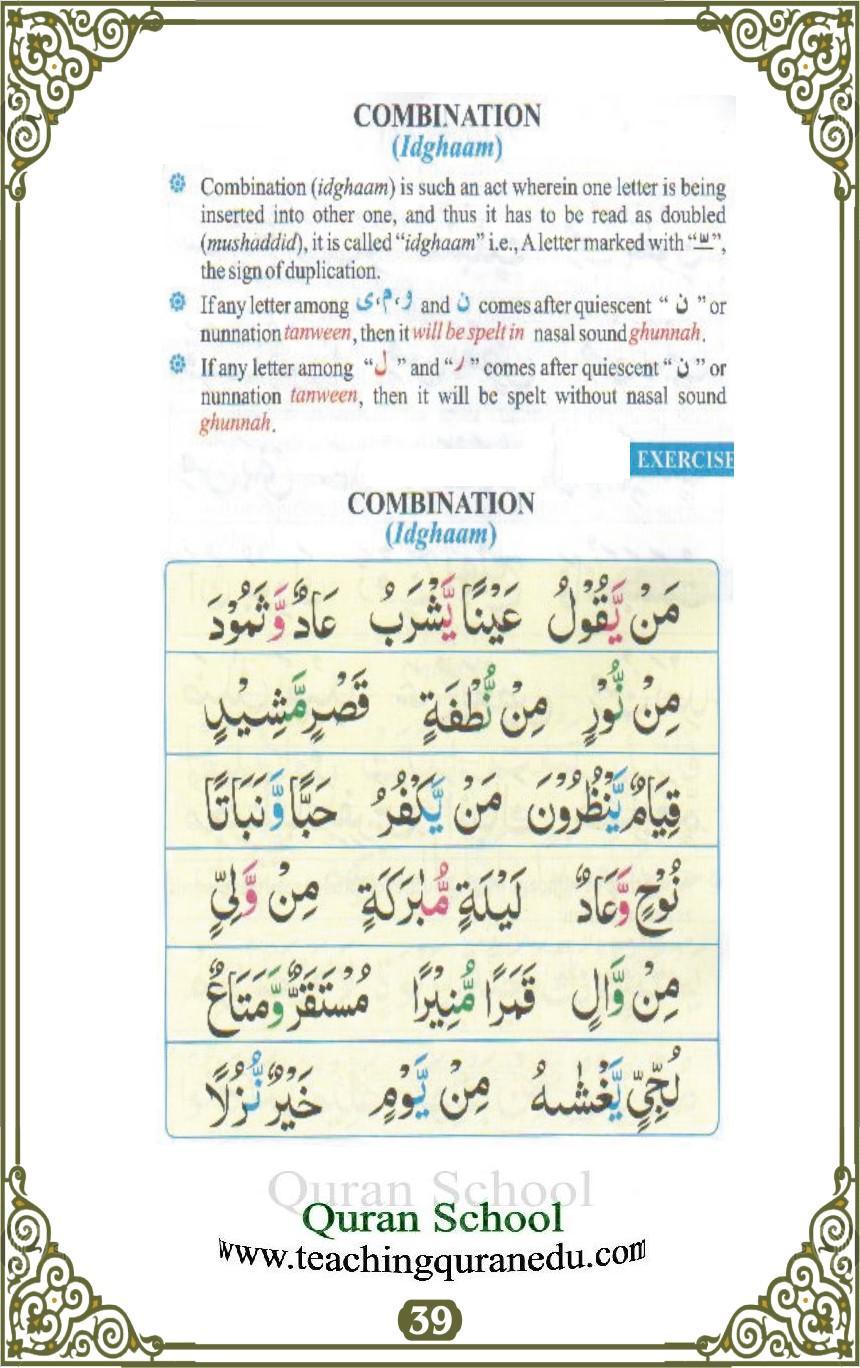 COMBINATION
(Idghaam)
Combination (idghaam) is such an act wherein one letter is being
inserted into other one, and thus it has to be read as doubled
(mushaddid), it is called “idghaam” i.e., A letter marked with “ـّـ”,
the sign of duplication.
If any letter among و، م، ی and ن comes after quiescent “ ن ” or
nunnation tanween, then it will be spelt in nasal sound ghunnah.
If any letter among “ل ” and “ر ” comes after quiescent “ ن ” or
nunnation tanween, then it will be spelt without nasal sound
ghunnah.
EXERCISE
COMBINATION
(Idghaam)
مَنْ يَّقُوْلُ عَيْنًا يَّشْرَبُ عَادٌ وَّثَمُوْدَ
مِنْ نُّوْرٍ مِنْ نُّطْفَةٍ قَصْرٍ مَّشِيْدٍ
قِيَامٌ يَّنْظُرُوْنَ مَنْ يَّكْفُرُ حَبًّا وَّنَبَاتًا
نُوْحٍ وَّعَادٌ لَيْلَةٍ مُّبٰرَكَةٍ مِنْ وَّلِيٍّ
مِنْ وَّالٍ قَمَرًا مُّنِيْرًا مُسْتَقَرٌّ وَّمَتَاعٌ
لُجِّيٍّ يَّغْشٰىهُ مِنْ يَّوْمٍ خَيْرٌ نُّزُلًا
Quran School
Quran School
www.teachingquranedu.com
39